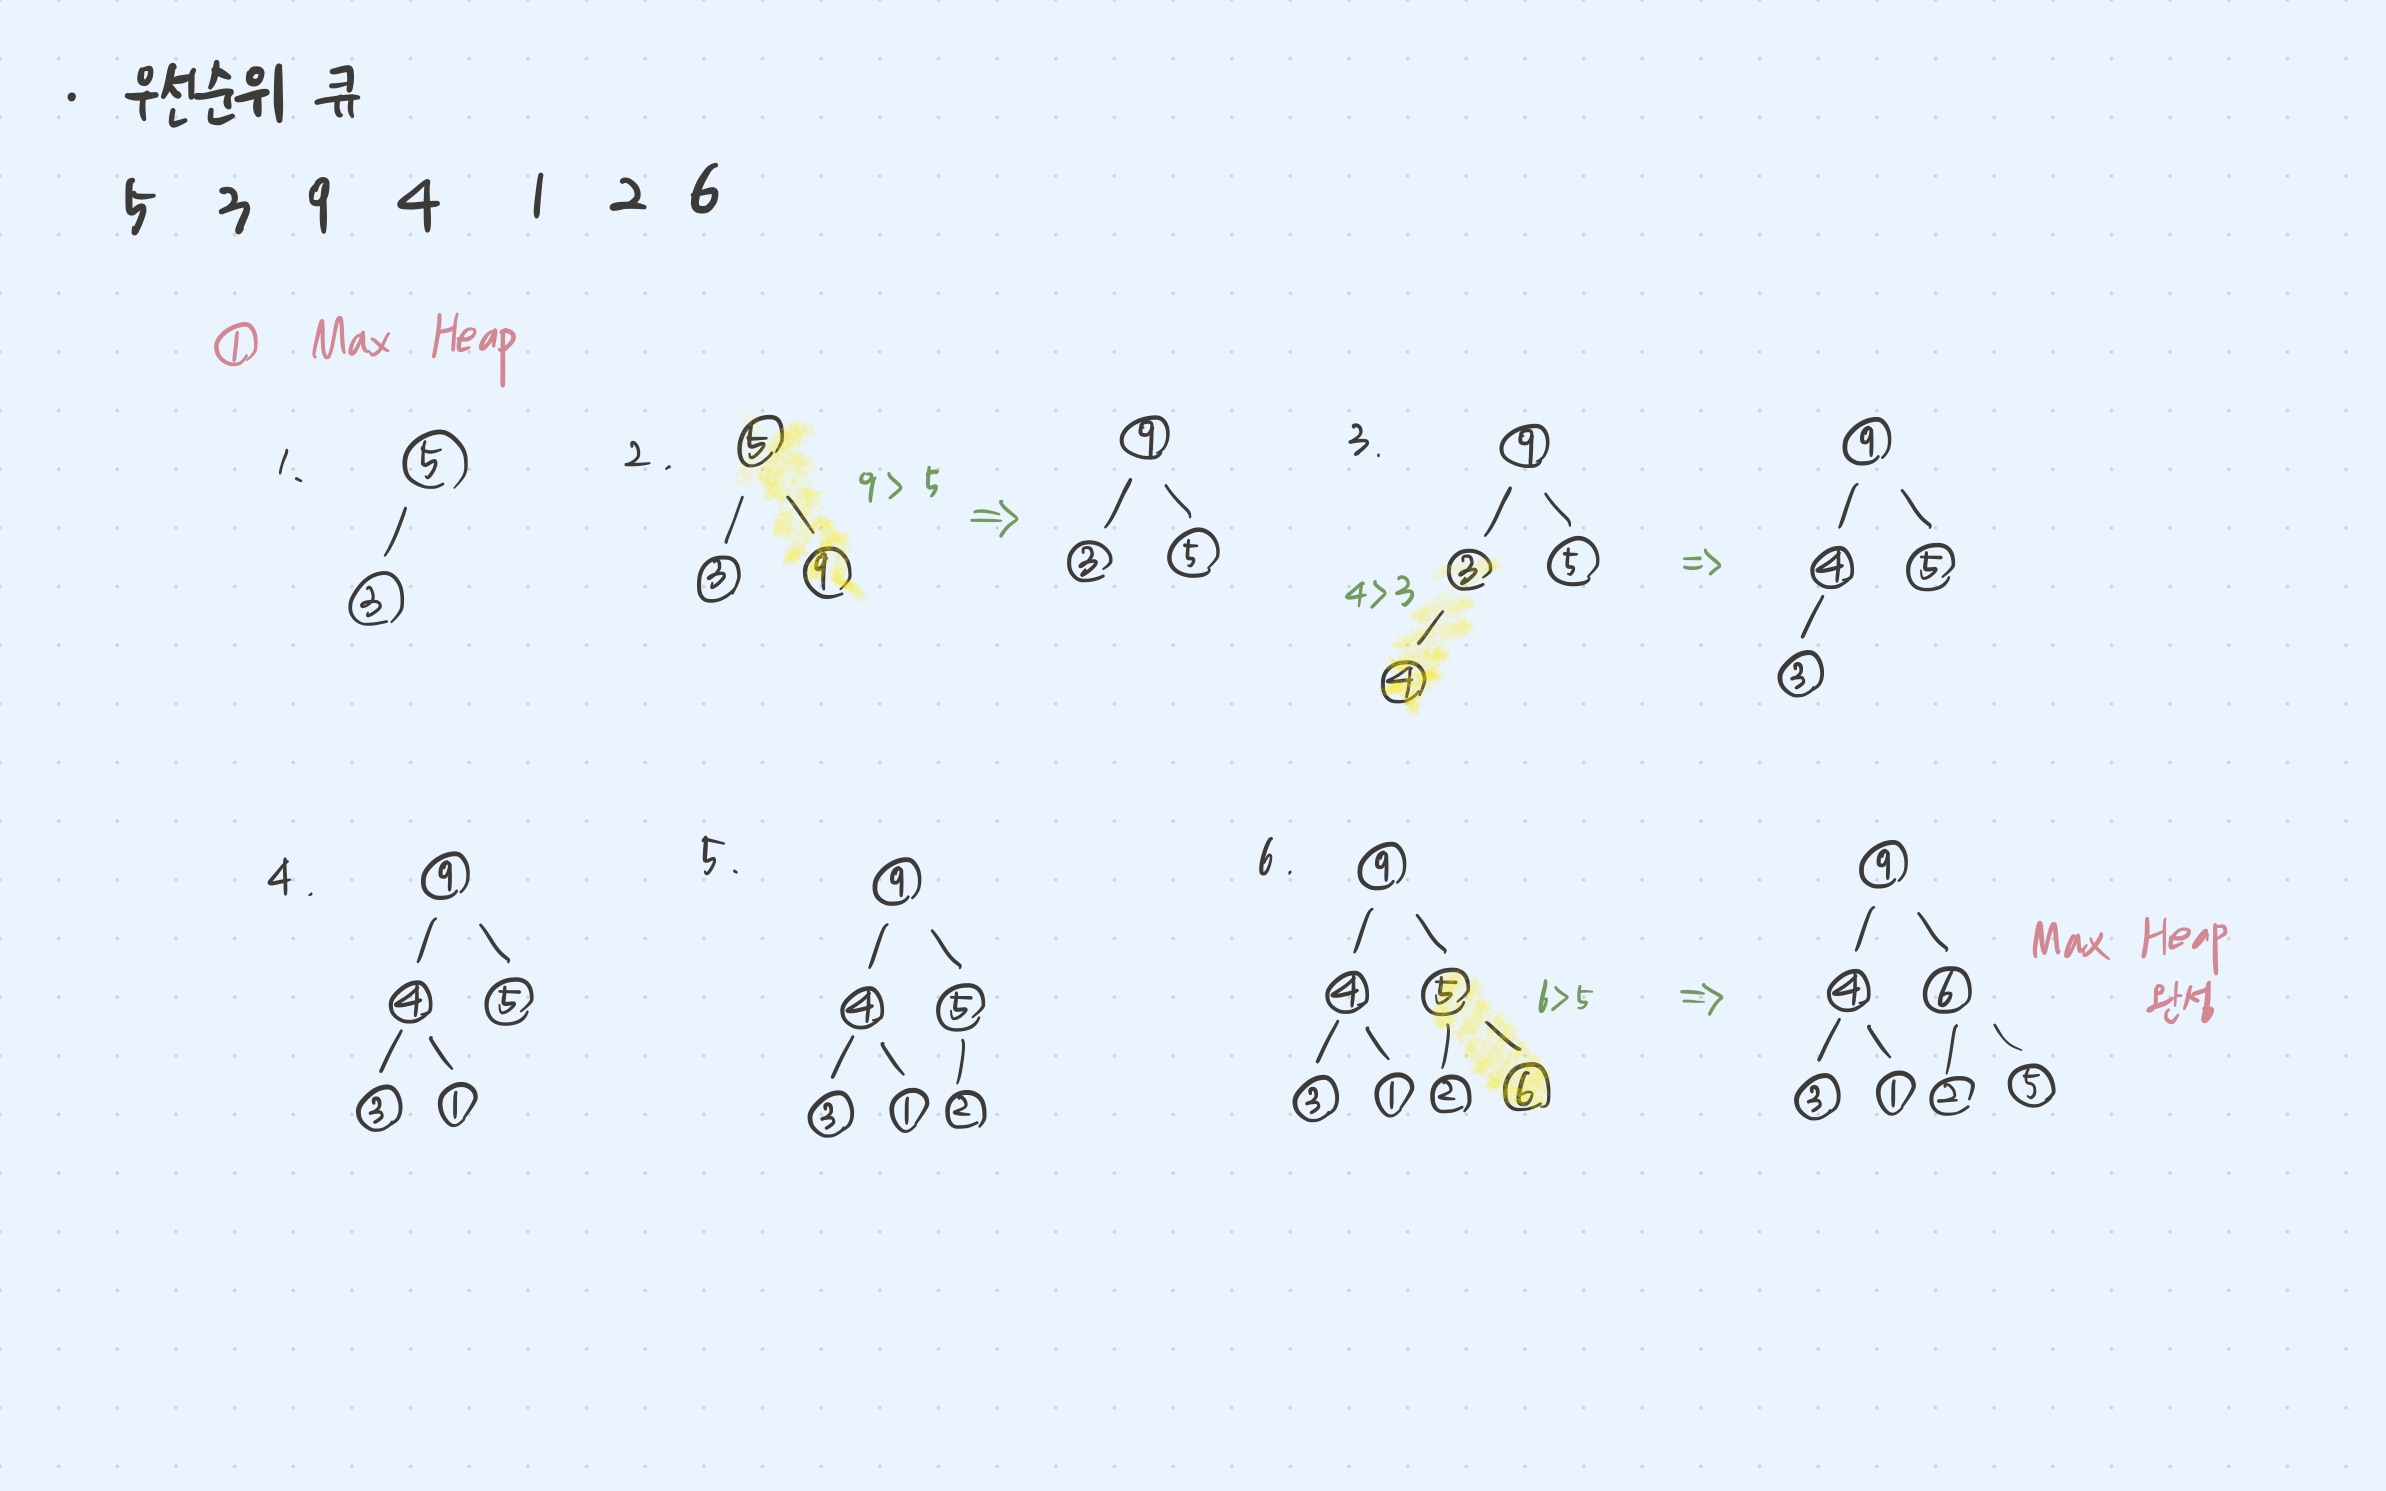 · 우선순위 큐
5 3 9 4 1 2 6
① Max Heap
1.
5
3
2.
5
3 9
9 > 5
=>
9
3 5
3.
9
3 5
4
4>3
=>
9
4 5
3
4.
9
4 5
3 1
5.
9
4 5
3 1 2
6.
9
4 5
3 1 2 6
6>5
=>
9
4 6
3 1 2 5
Max Heap
완성